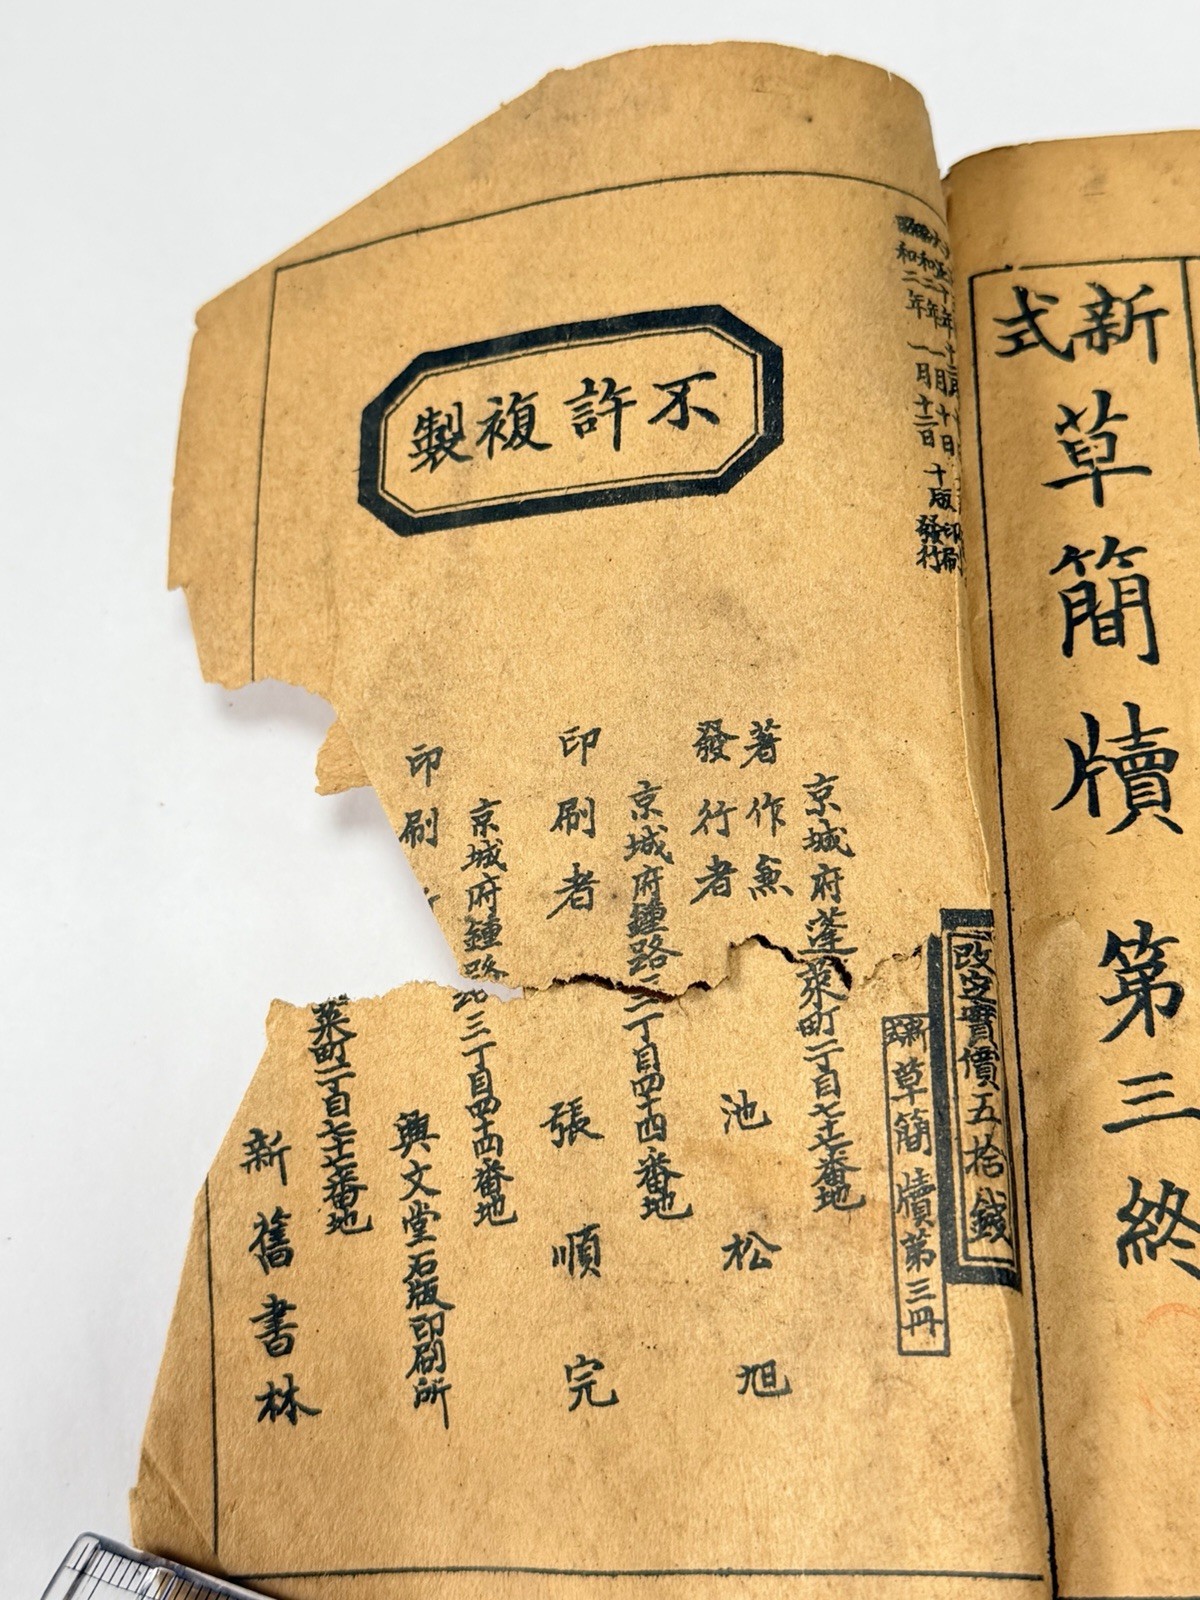 新式草簡牘 第三終
昭和二年 一月十日 十版印刷
昭和二年 一月十三日 十版發行
不許複製
改定實價五拾錢
新式草簡牘第三冊
京城府蓬萊町一丁目七十七番地
著作兼發行者 池松旭
京城府鍾路三丁目四十四番地
印刷者 張順完
京城府鍾路三丁目四十四番地
印刷 興文堂石版印刷所
萊町一丁目七十七番地
新舊書林